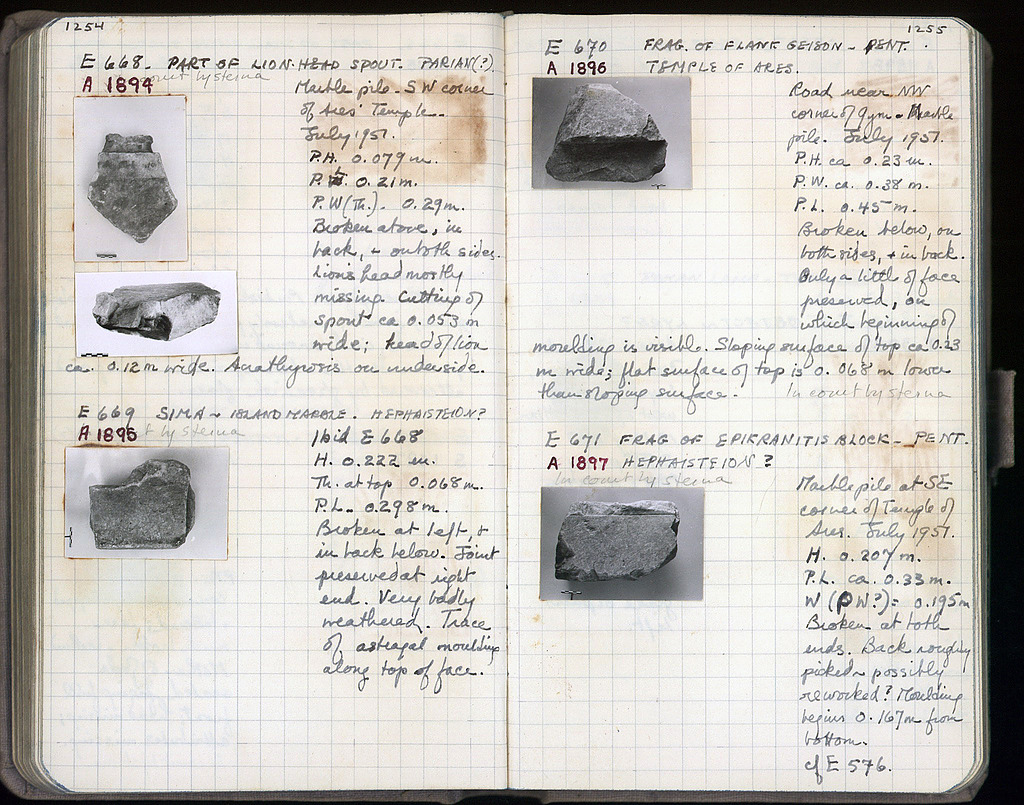 1254
E 668. PART OF LION-HEAD SPOUT. PARIAN(?)
A 1894 court by steina
Marble pile - SW corner
of Ares' Temple.
July 1951.
P.H. 0.079 m.
P.L. 0.21 m.
P.W (Th.). 0.29 m.
Broken above, in
back, + on both sides.
Lion's head mostly
missing. Cutting of
spout ca 0.053 m
wide; head of lion
ca. 0.12 m wide. Anathyrosis on underside.
E 669 SIMA - ISLAND MARBLE. HEPHAISTEION?
A 1895 t by steina
Ibid E 668
H. 0.222 m.
Th. at top 0.068 m.
P.L. 0.298 m.
Broken at left, +
in back below. Joint
preserved at right
end. Very badly
weathered. Trace
of astragal moulding
along top of face.
1255
E 670 FRAG. OF FLANK GEISON - PENT.
A 1896 TEMPLE OF ARES.
Road near NW
corner of Gym - Marble
pile. July 1951.
P.H. ca 0.23 m.
P.W. ca. 0.38 m.
P.L. 0.45 m.
Broken below, on
both sides, + in back.
Only a little of face
preserved, on
which beginning of
moulding is visible. Sloping surface of top ca 0.23
m wide; flat surface of top is 0.068 m lower
than sloping surface. In court by steina
E 671 FRAG OF EPIKRANITIS BLOCK - PENT.
A 1897 HEPHAISTEION?
In court by steina
Marble pile at SE
corner of Temple of
Ares. July 1951.
H. 0.207 m.
P.L. ca. 0.33 m.
W (PW?) = 0.195 m
Broken at both
ends. Back roughly
picked - possibly
reworked? Moulding
begins 0.167 m from
bottom.
cf E 576.